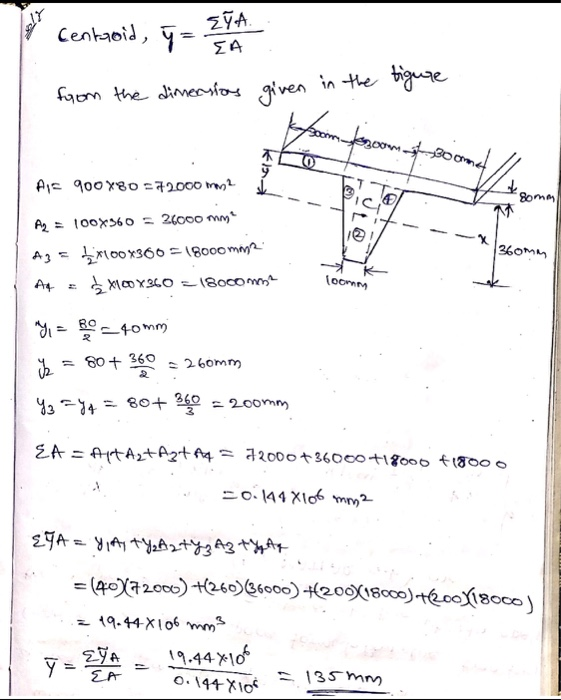 Centroid, ȳ = ΣȳA / ΣA
from the dimensions given in the figure
300mm 300mm 300mm
①
ȳ
③ ④
C
②
x
80mm
360mm
100mm
A1 = 900×80 = 72000 mm²
A2 = 100×360 = 36000 mm²
A3 = 1/2 ×100×360 = 18000mm²
A4 = 1/2 ×100×360 = 18000mm²
y1 = 80/2 = 40mm
y2 = 80 + 360/2 = 260mm
y3 = y4 = 80 + 360/3 = 200mm
ΣA = A1+A2+A3+A4 = 72000+36000+18000+18000
= 0.144×10⁶ mm²
ΣȳA = y1A1+y2A2+y3A3+y4A4
= (40)(72000)+(260)(36000)+(200)(18000)+(200)(18000)
= 19.44×10⁶ mm³
ȳ = ΣȳA / ΣA = 19.44×10⁶ / 0.144×10⁶ = 135mm